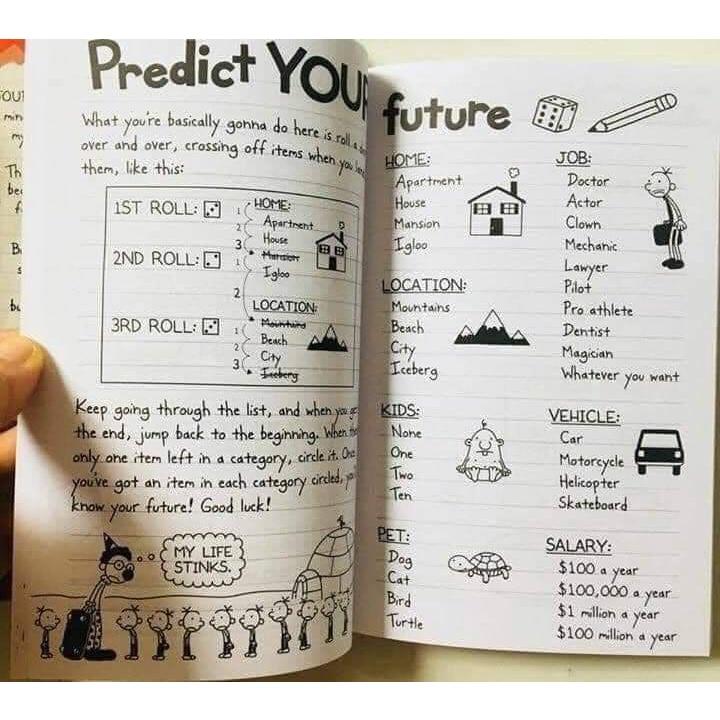 Predict YOUR future
What you're basically gonna do here is roll a
over and over, crossing off items when you
them, like this:
1ST ROLL:
2ND ROLL:
3RD ROLL:
HOME:
1 Apartment
2 House
3 Mansion
1 Igloo
2 LOCATION:
Mountains
1 Beach
2 City
3 Iceberg
Keep going through the list, and when you get
the end, jump back to the beginning. When
only one item left in a category, circle it. Once
you've got an item in each category circled,
know your future! Good luck!
MY LIFE
STINKS.
HOME:
Apartment
House
Mansion
Igloo
LOCATION:
Mountains
Beach
City
Iceberg
KIDS:
None
One
Two
Ten
PET:
Dog
Cat
Bird
Turtle
JOB:
Doctor
Actor
Clown
Mechanic
Lawyer
Pilot
Pro athlete
Dentist
Magician
Whatever you want
VEHICLE:
Car
Motorcycle
Helicopter
Skateboard
SALARY:
$100 a year
$100,000 a year
$1 million a year
$100 million a year